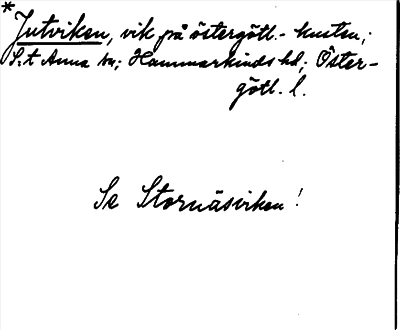 * Jutviken, vik på östergötl.- kusten;
S:t Anna sn; Hammarkinds hd; Öster-
götl. l.
Se Stornäsviken!